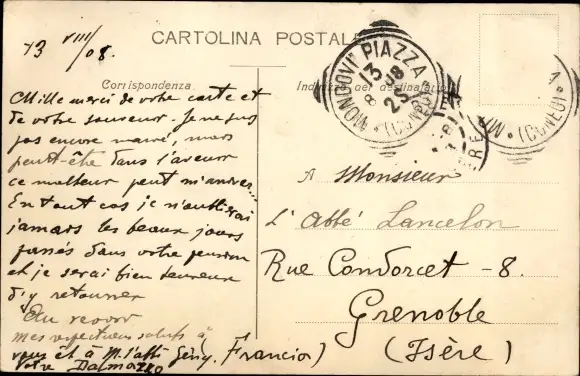 13 VIII/08.
CARTOLINA POSTALE
Corrispondenza.
Indirizzo del destinatario
MONDOVI' PIAZZA
13
8 08
(CUNEO)
(CUNEO)
Mille merci de votre carte et
de votre souvenir. Je ne suis
pas encore marié, mais
peut-être dans l'avenir
ce malheur peut m'arriver...
En tout cas je n'oublierai
jamais les beaux jours
passés dans votre pension
et je serai bien heureux
d'y retourner
Au revoir
mes respectueux saluts à
vous et à M. l'abbé Gény, Francior)
Votre Dalmazzo
A Monsieur
L'Abbé Lancelon
Rue Condorcet - 8.
Grenoble
(Isère)